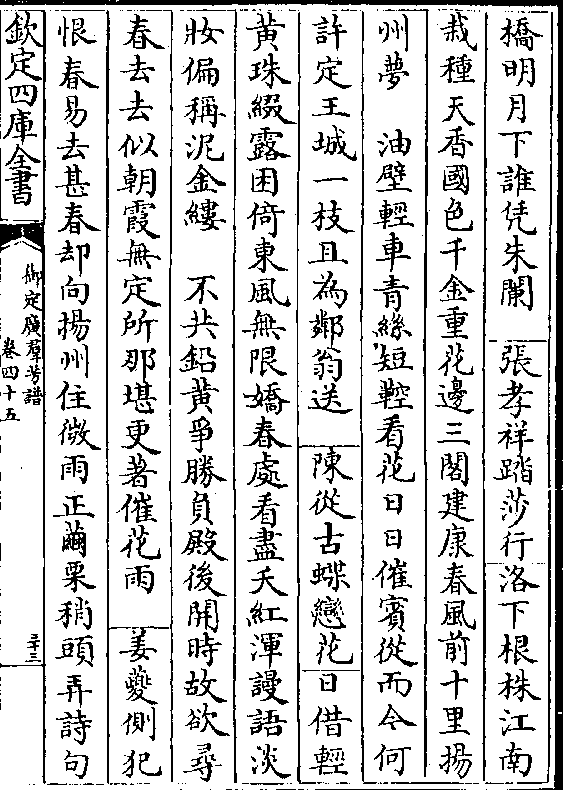 橋明月下誰凭朱闌 張孝祥踏莎行洛下根株江南
栽種天香國色千金重花邊三閣建康春風前十里揚
州夢 油壁輕車青絲短鞚看花日日催賓從而今何
許定王城一枝且為鄰翁送 陳從古蝶戀花日借輕
黃珠綴露困倚東風無限嬌春處看盡夭紅渾謾語淡
妝偏稱泥金縷 不共鉛黃爭勝負殿後開時故欲尋
春去去似朝霞無定所那堪更著催花雨 姜夔側犯
恨春易去甚春却向揚州住微雨正繭栗稍頭弄詩句
欽定四庫全書
御定廣羣芳譜
卷四十五
三十三